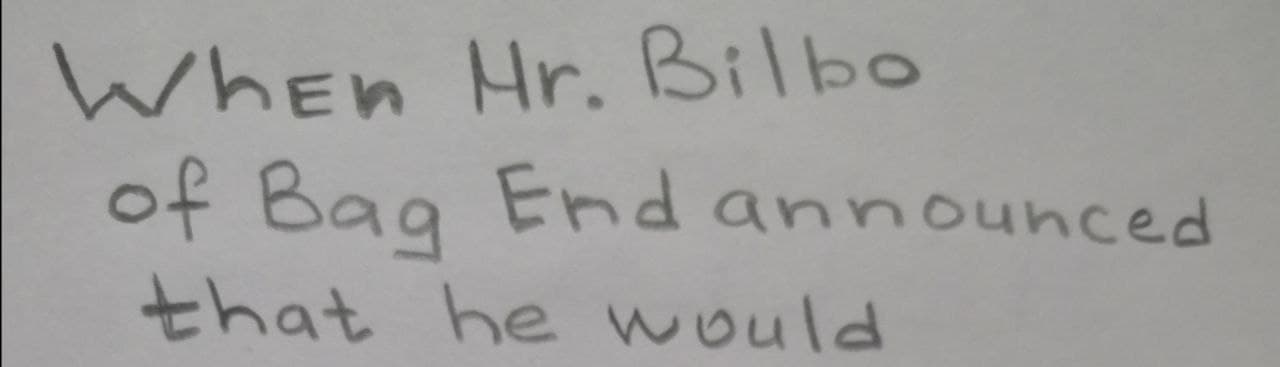 When Mr. Bilbo
of Bag End announced
that he would